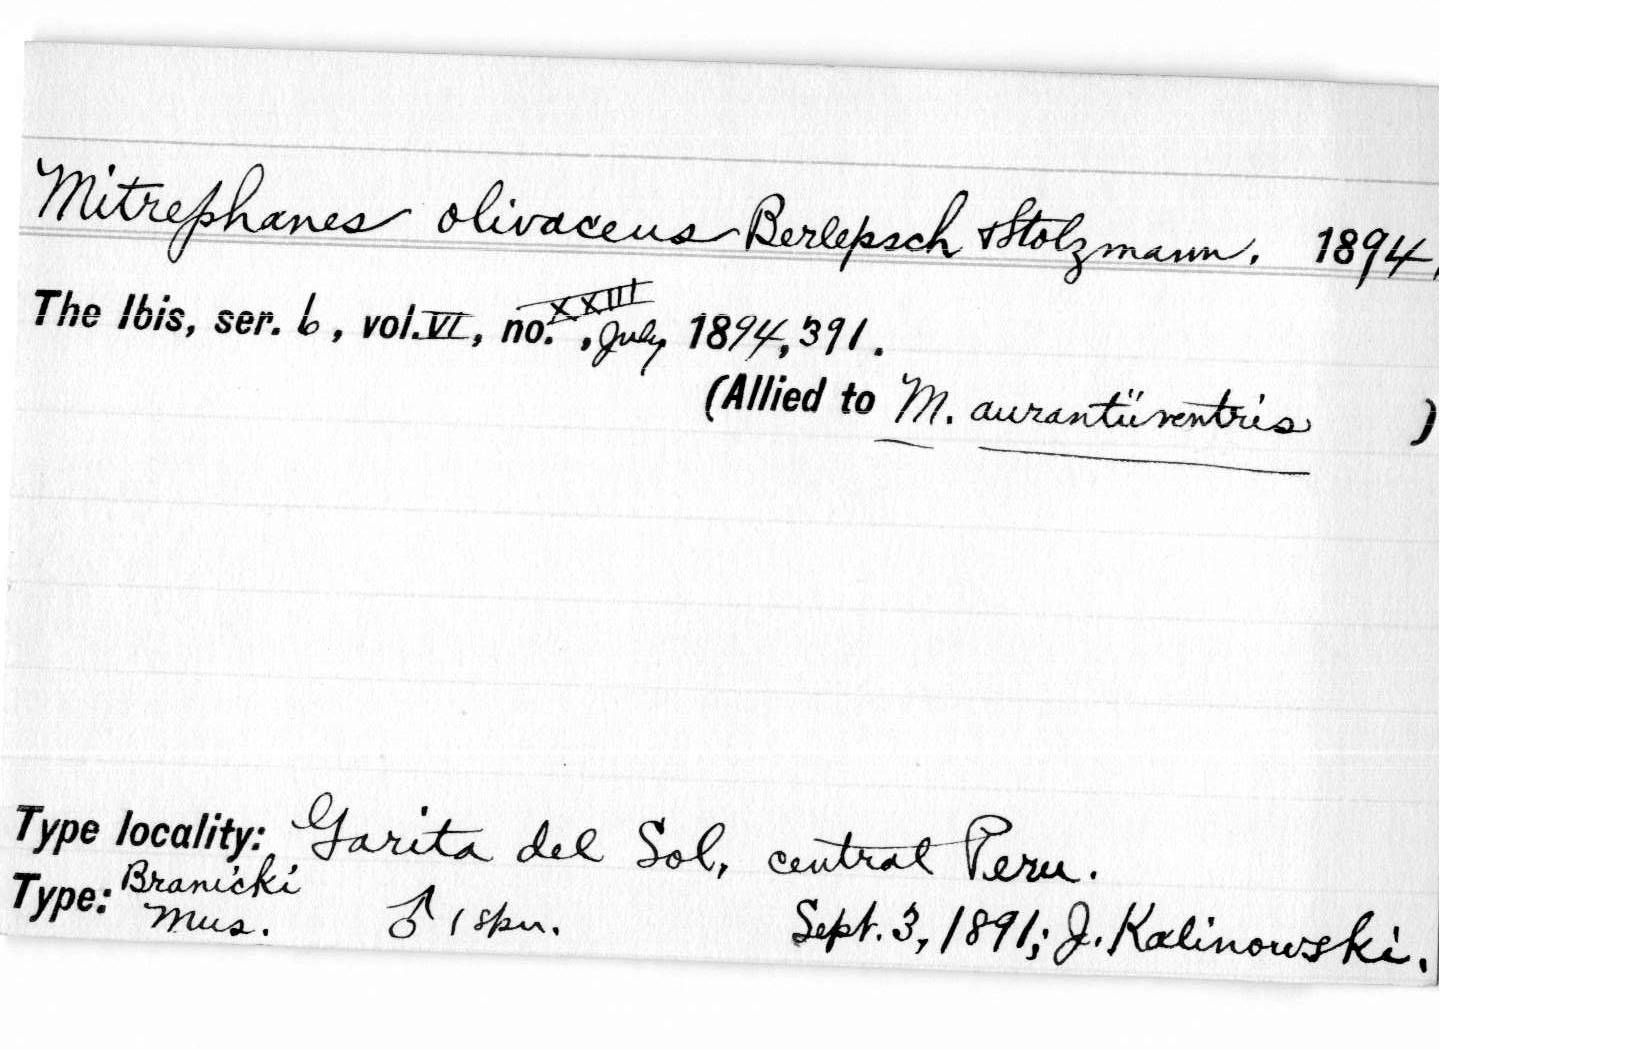 Mitrephanes olivaceus Berlepsch & Stolzmann. 1894.
The Ibis, ser. 6, vol. VI, no. XXIII, July 1894, 391.
(Allied to M. aurantiiventris )
Type locality: Garita del Sol, central Peru.
Type: Branicki Mus. ♂ 1 spn. Sept. 3, 1891; J. Kalinowski.